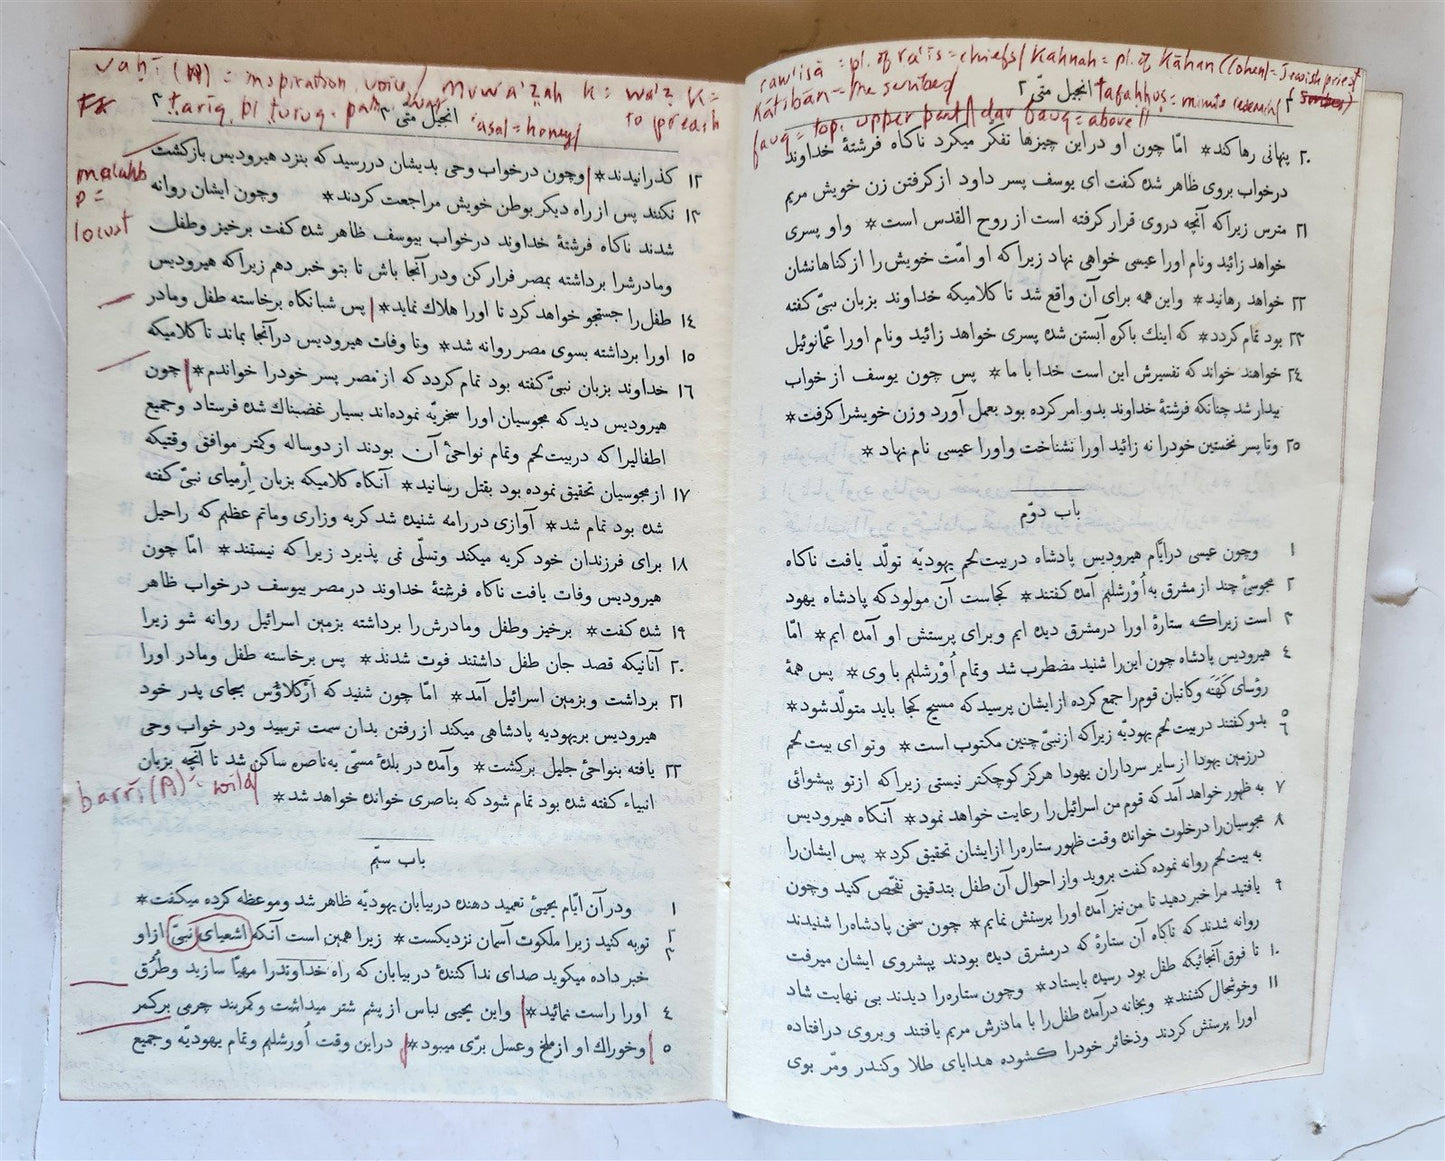 rawīsā = pl. of ra'is = chiefs/ Kahnah = pl. of Kāhan (Cohen) = Jewish priest
Kātibān = the scribes/ انجیل متّی ۲ tafahhus = minute
fauq = top, upper part/ dar fauq = above//
۲۰ پنهانی رها کند * امّا چون او در این چیزها تفکّر میکرد ناکاه فرشتهٔ خداوند
درخواب بروی ظاهر شده کفت ای یوسف پسر داود از کرفتن زن خویش مریم
۲۱ مترس زیرا که آنچه دروی قرار کرفته است از روح القدس است * واو پسری
خواهد زائید ونام اورا عیسی خواهی نهاد زیرا که او امّت خویش را از کناهانشان
۲۲ خواهد رهانید * واین همه برای آن واقع شد تا کلامیکه خداوند بزبان نبیّ کفته
۲۳ بود تمام کردد * که اینك باکره آبستن شده پسری خواهد زائید ونام اورا عمّانوئیل
۲۴ خواهند خواند که تفسیرش این است خدا با ما * پس چون یوسف از خواب
بیدار شد چنانکه فرشتهٔ خداوند بدو امر کرده بود بعمل آورد وزن خویشرا کرفت *
۲۵ وتا پسر نخستین خودرا نه زائید اورا نشناخت واورا عیسی نام نهاد *
باب دوّم
۱ وچون عیسی درایّام هیرودیس پادشاه دربیت لحم یهودیّه تولّد یافت ناکاه
۲ مجوسیٔ چند از مشرق به اُوْرشلیم آمده کفتند * کجاست آن مولود که پادشاه یهود
۳ است زیرا که ستارهٔ اورا درمشرق دیده ایم وبرای پرستش او آمده ایم * امّا
۴ هیرودیس پادشاه چون این را شنید مضطرب شد وتمام اُوْرشلیم با وی * پس همهٔ
رؤسای کَهَنَه وکاتبان قوم را جمع کرده از ایشان پرسید که مسیح کجا باید متولّد شود *
۵ بدو کفتند دربیت لحم یهودیّه زیرا که از نبیّ چنین مکتوب است *
۶ وتو ای بیت لحم
درزمین یهودا از سایر سرداران یهودا هرکز کوچکتر نیستی زیرا که از تو پیشوائی
۷ به ظهور خواهد آمد که قوم من اسرائیل را رعایت خواهد نمود * آنکاه هیرودیس
۸ مجوسیان را درخلوت خوانده وقت ظهور ستاره را از ایشان تحقیق کرد * پس ایشان را
به بیت لحم روانه نموده کفت بروید واز احوال آن طفل بتدقیق تفحّص کنید وچون
۹ یافتید مرا خبر دهید تا من نیز آمده اورا پرستش نمایم * چون سخن پادشاه را شنیدند
روانه شدند که ناکاه آن ستارهٔ که درمشرق دیده بودند پیشروی ایشان میرفت
۱۰ تا فوق آنجائیکه طفل بود رسیده بایستاد * وچون ستاره را دیدند بی نهایت شاد
۱۱ وخوشحال کشتند * وبخانه درآمده طفل را با مادرش مریم یافتند وبروی درافتاده
اورا پرستش کردند وذخائر خودرا کشوده هدایای طلا وکندر ومرّ بوی
vahī (A) = inspiration, voice/ muwa'zah k = wa'z k = to preach
tarīq pl turuq = path, way انجیل متّی ۳ 'asal = honey/
malakh
p =
locust
۱۲ کذرانیدند * وچون درخواب وحی بدیشان دررسید که بنزد هیرودیس بازکشت
۱۳ نکنند پس از راه دیکر بوطن خویش مراجعت کردند * وچون ایشان روانه
شدند ناکاه فرشتهٔ خداوند درخواب بیوسف ظاهر شده کفت برخیز وطفل
ومادرشرا برداشته بمصر فرار کن ودر آنجا باش تا بتو خبر دهم زیرا که هیرودیس
۱۴ طفل را جستجو خواهد کرد تا اورا هلاك نماید * پس شبانکاه برخاسته طفل ومادر
۱۵ اورا برداشته بسوی مصر روانه شد * وتا وفات هیرودیس درآنجا بماند تا کلامیکه
۱۶ خداوند بزبان نبیّ کفته بود تمام کردد که از مصر پسر خودرا خواندم * چون
هیرودیس دید که مجوسیان اورا سخریّه نموده‌اند بسیار غضبناك شده فرستاد وجمیع
اطفالیرا که دربیت لحم وتمام نواحیٔ آن بودند از دوساله وکمتر موافق وقتیکه
۱۷ از مجوسیان تحقیق نموده بود بقتل رسانید * آنکاه کلامیکه بزبان اِرْمیای نبیّ کفته
شده بود تمام شد * آوازی در رامه شنیده شد کریه وزاری وماتم عظیم که راحیل
۱۸ برای فرزندان خود کریه میکند وتسلّی نمی پذیرد زیرا که نیستند * امّا چون
هیرودیس وفات یافت ناکاه فرشتهٔ خداوند درمصر بیوسف درخواب ظاهر
۱۹ شده کفت * برخیز وطفل ومادرش را برداشته بزمین اسرائیل روانه شو زیرا
۲۰ آنانیکه قصد جان طفل داشتند فوت شدند * پس برخاسته طفل ومادر اورا
۲۱ برداشت وبزمین اسرائیل آمد * امّا چون شنید که اَرْکلاؤس بجای پدر خود
هیرودیس بریهودیه پادشاهی میکند از رفتن بدان سمت ترسید ودر خواب وحی
۲۲ یافته بنواحیٔ جلیل برکشت * وآمده در بلدهٔ مسمّی به ناصره ساکن شد تا آنچه بزبان
انبیاء کفته شده بود تمام شود که بناصری خوانده خواهد شد *
barrī (A) = wild/
باب سیّم
۱ ودر آن ایّام یحییٔ تعمید دهنده دربیابان یهودیّه ظاهر شد وموعظه کرده میکفت *
۲ توبه کنید زیرا ملکوت آسمان نزدیکست *
۳ زیرا همین است آنکه اشعیای نبیّ از او
خبر داده میکوید صدای ندا کنندهٔ در بیابان که راه خداوندرا مهیّا سازید وطُرُق
۴ اورا راست نمائید * واین یحیی لباس از پشم شتر میداشت وکمربند چرمی برکمر
۵ وخوراك او از ملخ وعسل برّی میبود * دراین وقت اُورشلیم وتمام یهودیّه وجمیع